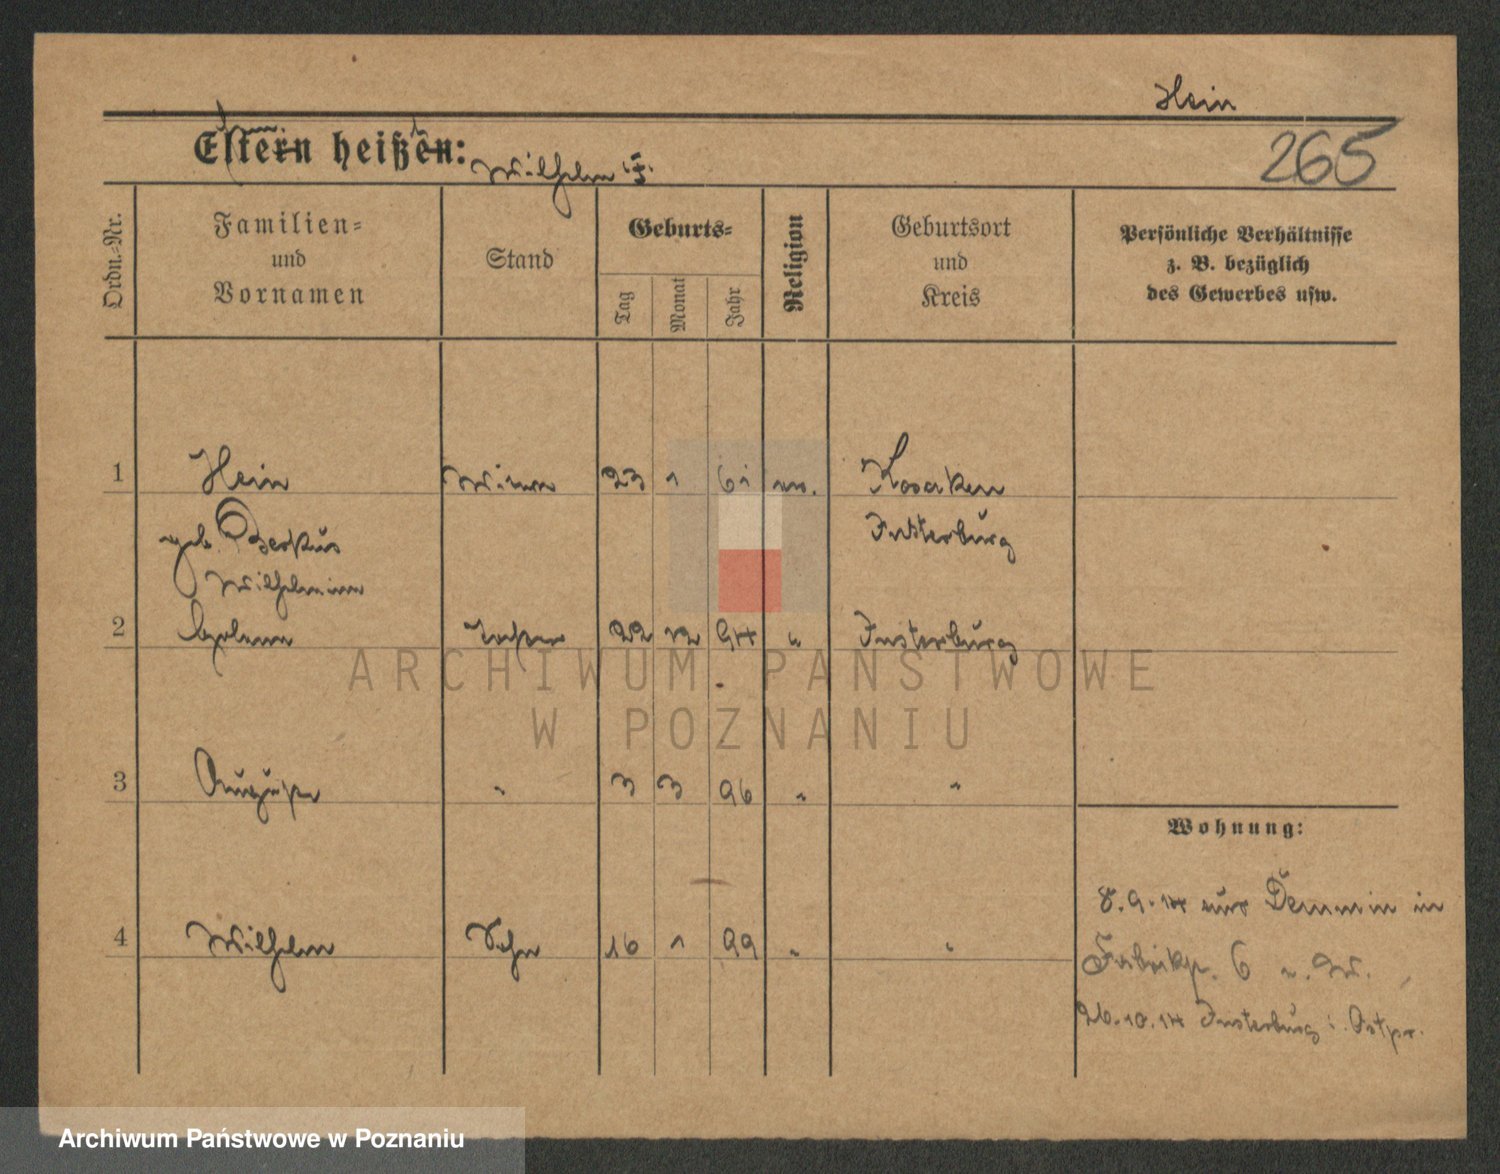 Hein
265
Eltern heißen:
Wilhelm
Ordn.-Nr.
Familien-
und
Vornamen
Stand
Geburts-
Tag
Monat
Jahr
Religion
Geburtsort
und
Kreis
Persönliche Verhältnisse
z. B. bezüglich
des Gewerbes usw.
1 Hein Witwe 23 1 61 ev. Kosaken
geb. Insterburg
Wilhelmine
2 Helene Tochter 22 12 94 " Insterburg
3 Auguste " 3 3 96 " "
Wohnung:
4 Wilhelm Sohn 16 1 99 " "
8.9.14 aus Demmin in
Fabrikstr. 6
26.10.14 Insterburg i. Ostpr.
ARCHIWUM PAŃSTWOWE
W POZNANIU
Archiwum Państwowe w Poznaniu